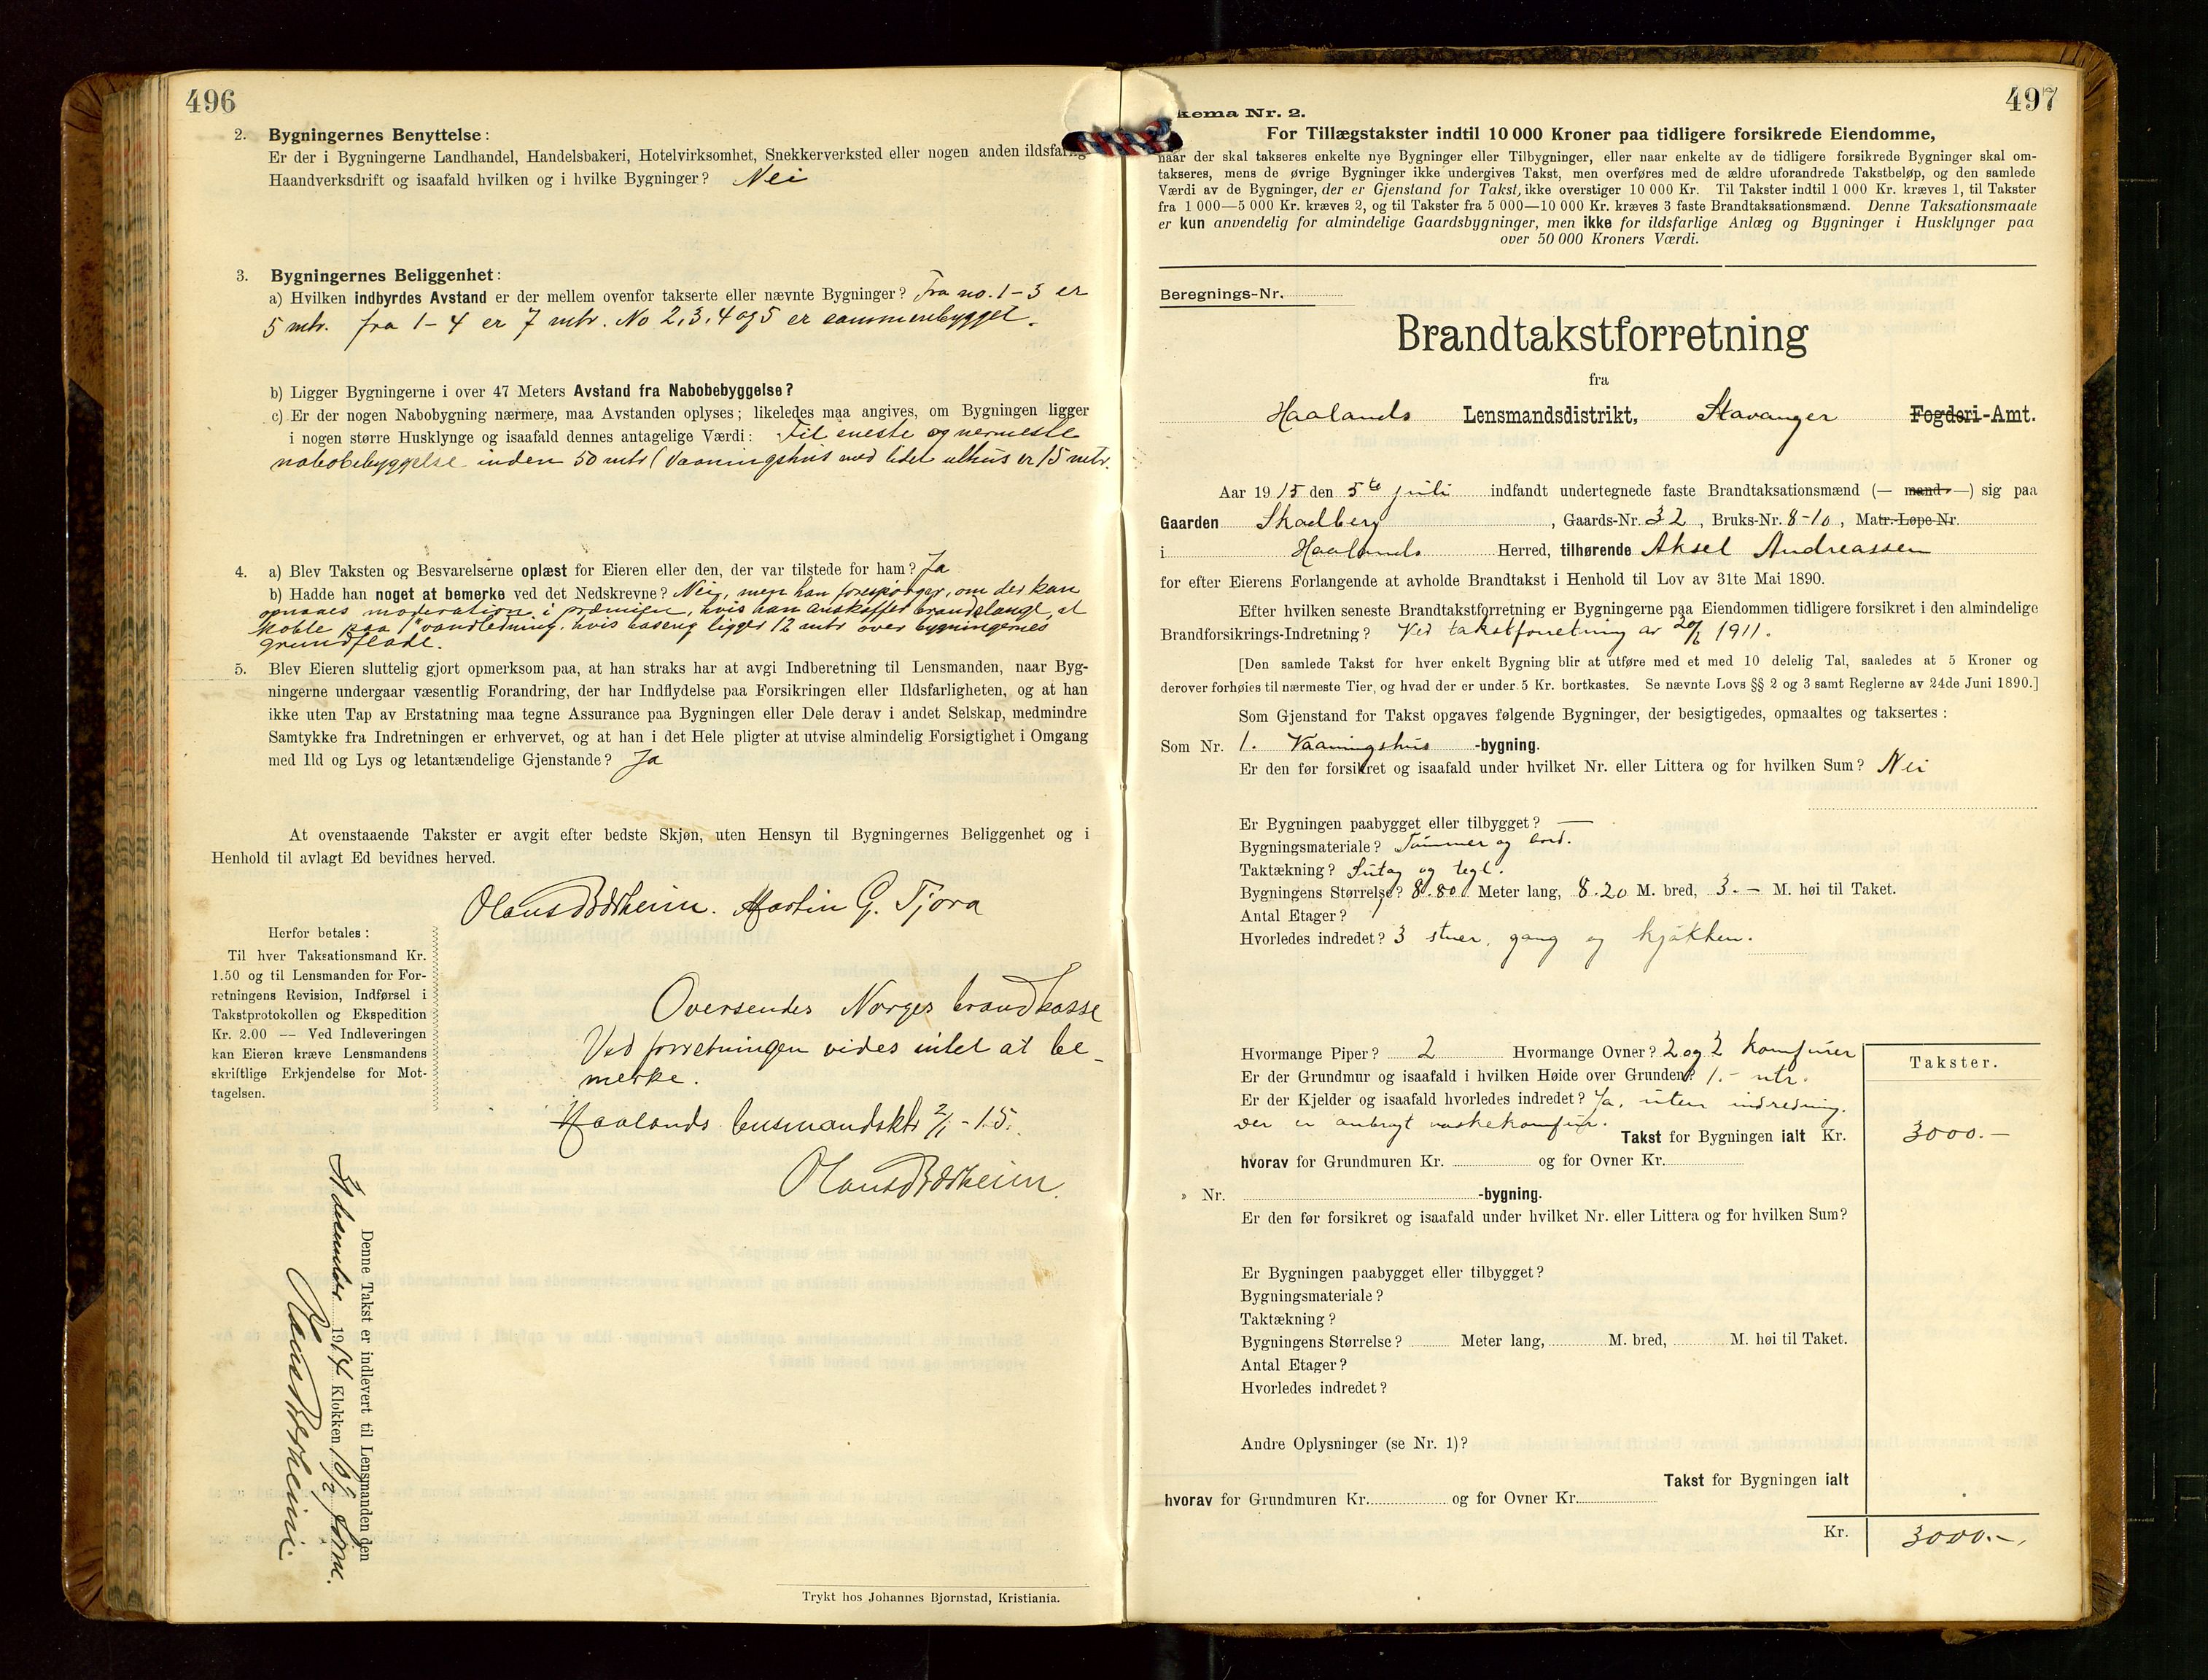 496
2. Bygningernes Benyttelse:
Er der i Bygningerne Landhandel, Handelsbakeri, Hotelvirksomhet, Snekkerverksted eller nogen anden ildsfarlig
Haandverksdrift og isaafald hvilken og i hvilke Bygninger? Nei
3. Bygningernes Beliggenhet:
a) Hvilken indbyrdes Avstand er der mellem ovenfor takserte eller nævnte Bygninger? Fra no. 1-3 er
5 mtr. fra 1-4 er 7 mtr. No 2, 3, 4 og 5 er sammenbygget.
b) Ligger Bygningerne i over 47 Meters Avstand fra Nabobebyggelse?
c) Er der nogen Nabobygning nærmere, maa Avstanden oplyses; likeledes maa angives, om Bygningen ligger
i nogen større Husklynge og isaafald dennes antagelige Værdi: Til eneste og nermeste
nabobebyggelse inden 50 mtr (Vaaningshus med lidet uthus er 15 mtr.
4. a) Blev Taksten og Besvarelserne oplæst for Eieren eller den, der var tilstede for ham? Ja
b) Hadde han noget at bemerke ved det Nedskrevne? Nei, men han forespørger, om der kan
opnaaes moderation i præmien, hvis han anskaffet brandslange, at
koble paa 1" vandledning, hvis baseng ligger 12 mtr over bygningernes
grundflade.
5. Blev Eieren sluttelig gjort opmerksom paa, at han straks har at avgi Indberetning til Lensmanden, naar Byg-
ningerne undergaar væsentlig Forandring, der har Indflydelse paa Forsikringen eller Ildsfarligheten, og at han
ikke uten Tap av Erstatning maa tegne Assurance paa Bygningen eller Dele derav i andet Selskap, medmindre
Samtykke fra Indretningen er erhvervet, og at han i det Hele pligter at utvise almindelig Forsigtighet i Omgang
med Ild og Lys og letantændelige Gjenstande? Ja
At ovenstaaende Takster er avgit efter bedste Skjøn, uten Hensyn til Bygningernes Beliggenhet og i
Henhold til avlagt Ed bevidnes herved.
Martin G. Tjora
Herfor betales:
Til hver Taksationsmand Kr.
1.50 og til Lensmanden for For-
retningens Revision, Indførsel i
Takstprotokollen og Ekspedition
Kr. 2.00 — Ved Indleveringen
kan Eieren kræve Lensmandens
skriftlige Erkjendelse for Mot-
tagelsen.
Oversendes Norges brandkasse
Ved forretningen vides intet at be-
merke.
Haalands lensmandsktr 2/1 - 15.
Denne Takst er indlevert til Lensmanden den
1914 Klokken 10 1/2 form.
Trykt hos Johannes Bjørnstad, Kristiania.
497
kema Nr. 2.
For Tillægstakster indtil 10 000 Kroner paa tidligere forsikrede Eiendomme,
naar der skal takseres enkelte nye Bygninger eller Tilbygninger, eller naar enkelte av de tidligere forsikrede Bygninger skal om-
takseres, mens de øvrige Bygninger ikke undergives Takst, men overføres med de ældre uforandrede Takstbeløp, og den samlede
Værdi av de Bygninger, der er Gjenstand for Takst, ikke overstiger 10 000 Kr. Til Takster indtil 1 000 Kr. kræves 1, til Takster
fra 1 000—5 000 Kr. kræves 2, og til Takster fra 5 000—10 000 Kr. kræves 3 faste Brandtaksationsmænd. Denne Taksationsmaate
er kun anvendelig for almindelige Gaardsbygninger, men ikke for ildsfarlige Anlæg og Bygninger i Husklynger paa
over 50 000 Kroners Værdi.
Beregnings-Nr.
Brandtakstforretning
fra
Haalands Lensmandsdistrikt, Stavanger Fogderi-Amt.
Aar 1915 den 5te juli indfandt undertegnede faste Brandtaksationsmænd (— mand —) sig paa
Gaarden Skadberg, Gaards-Nr. 32, Bruks-Nr. 8-10, Matr.-Løpe-Nr.
i Haalands Herred, tilhørende Aksel Andreassen
for efter Eierens Forlangende at avholde Brandtakst i Henhold til Lov av 31te Mai 1890.
Efter hvilken seneste Brandtakstforretning er Bygningerne paa Eiendommen tidligere forsikret i den almindelige
Brandforsikrings-Indretning? Ved takstforretning av 1911.
[Den samlede Takst for hver enkelt Bygning blir at utføre med et med 10 delelig Tal, saaledes at 5 Kroner og
derover forhøies til nærmeste Tier, og hvad der er under 5 Kr. bortkastes. Se nævnte Lovs §§ 2 og 3 samt Reglerne av 24de Juni 1890.]
Som Gjenstand for Takst opgaves følgende Bygninger, der besigtigedes, opmaaltes og taksertes:
Som Nr. 1. Vaaningshus -bygning.
Er den før forsikret og isaafald under hvilket Nr. eller Littera og for hvilken Sum? Nei
Er Bygningen paabygget eller tilbygget? —
Bygningsmateriale? Tømmer og bord.
Taktækning? Sutag og tegl.
Bygningens Størrelse? 8.80 Meter lang, 8.20 M. bred, 3.- M. høi til Taket.
Antal Etager? 1
Hvorledes indredet? 3 stuer, gang og kjøkken.
Hvormange Piper? 2 Hvormange Ovner? 2 og 2 komfurer
Takster.
Er der Grundmur og isaafald i hvilken Høide over Grunden? 1.- mtr.
Er der Kjelder og isaafald hvorledes indredet? Ja, uten indredning.
Der er anbragt vaskekomfur.
Takst for Bygningen ialt Kr. 3000.-
hvorav for Grundmuren Kr. og for Ovner Kr.
» Nr. -bygning.
Er den før forsikret og isaafald under hvilket Nr. eller Littera og for hvilken Sum?
Er Bygningen paabygget eller tilbygget?
Bygningsmateriale?
Taktækning?
Bygningens Størrelse? Meter lang, M. bred, M. høi til Taket.
Antal Etager?
Hvorledes indredet?
Andre Oplysninger (se Nr. 1)?
Takst for Bygningen ialt
hvorav for Grundmuren Kr. og for Ovner Kr.
Kr. 3000.-